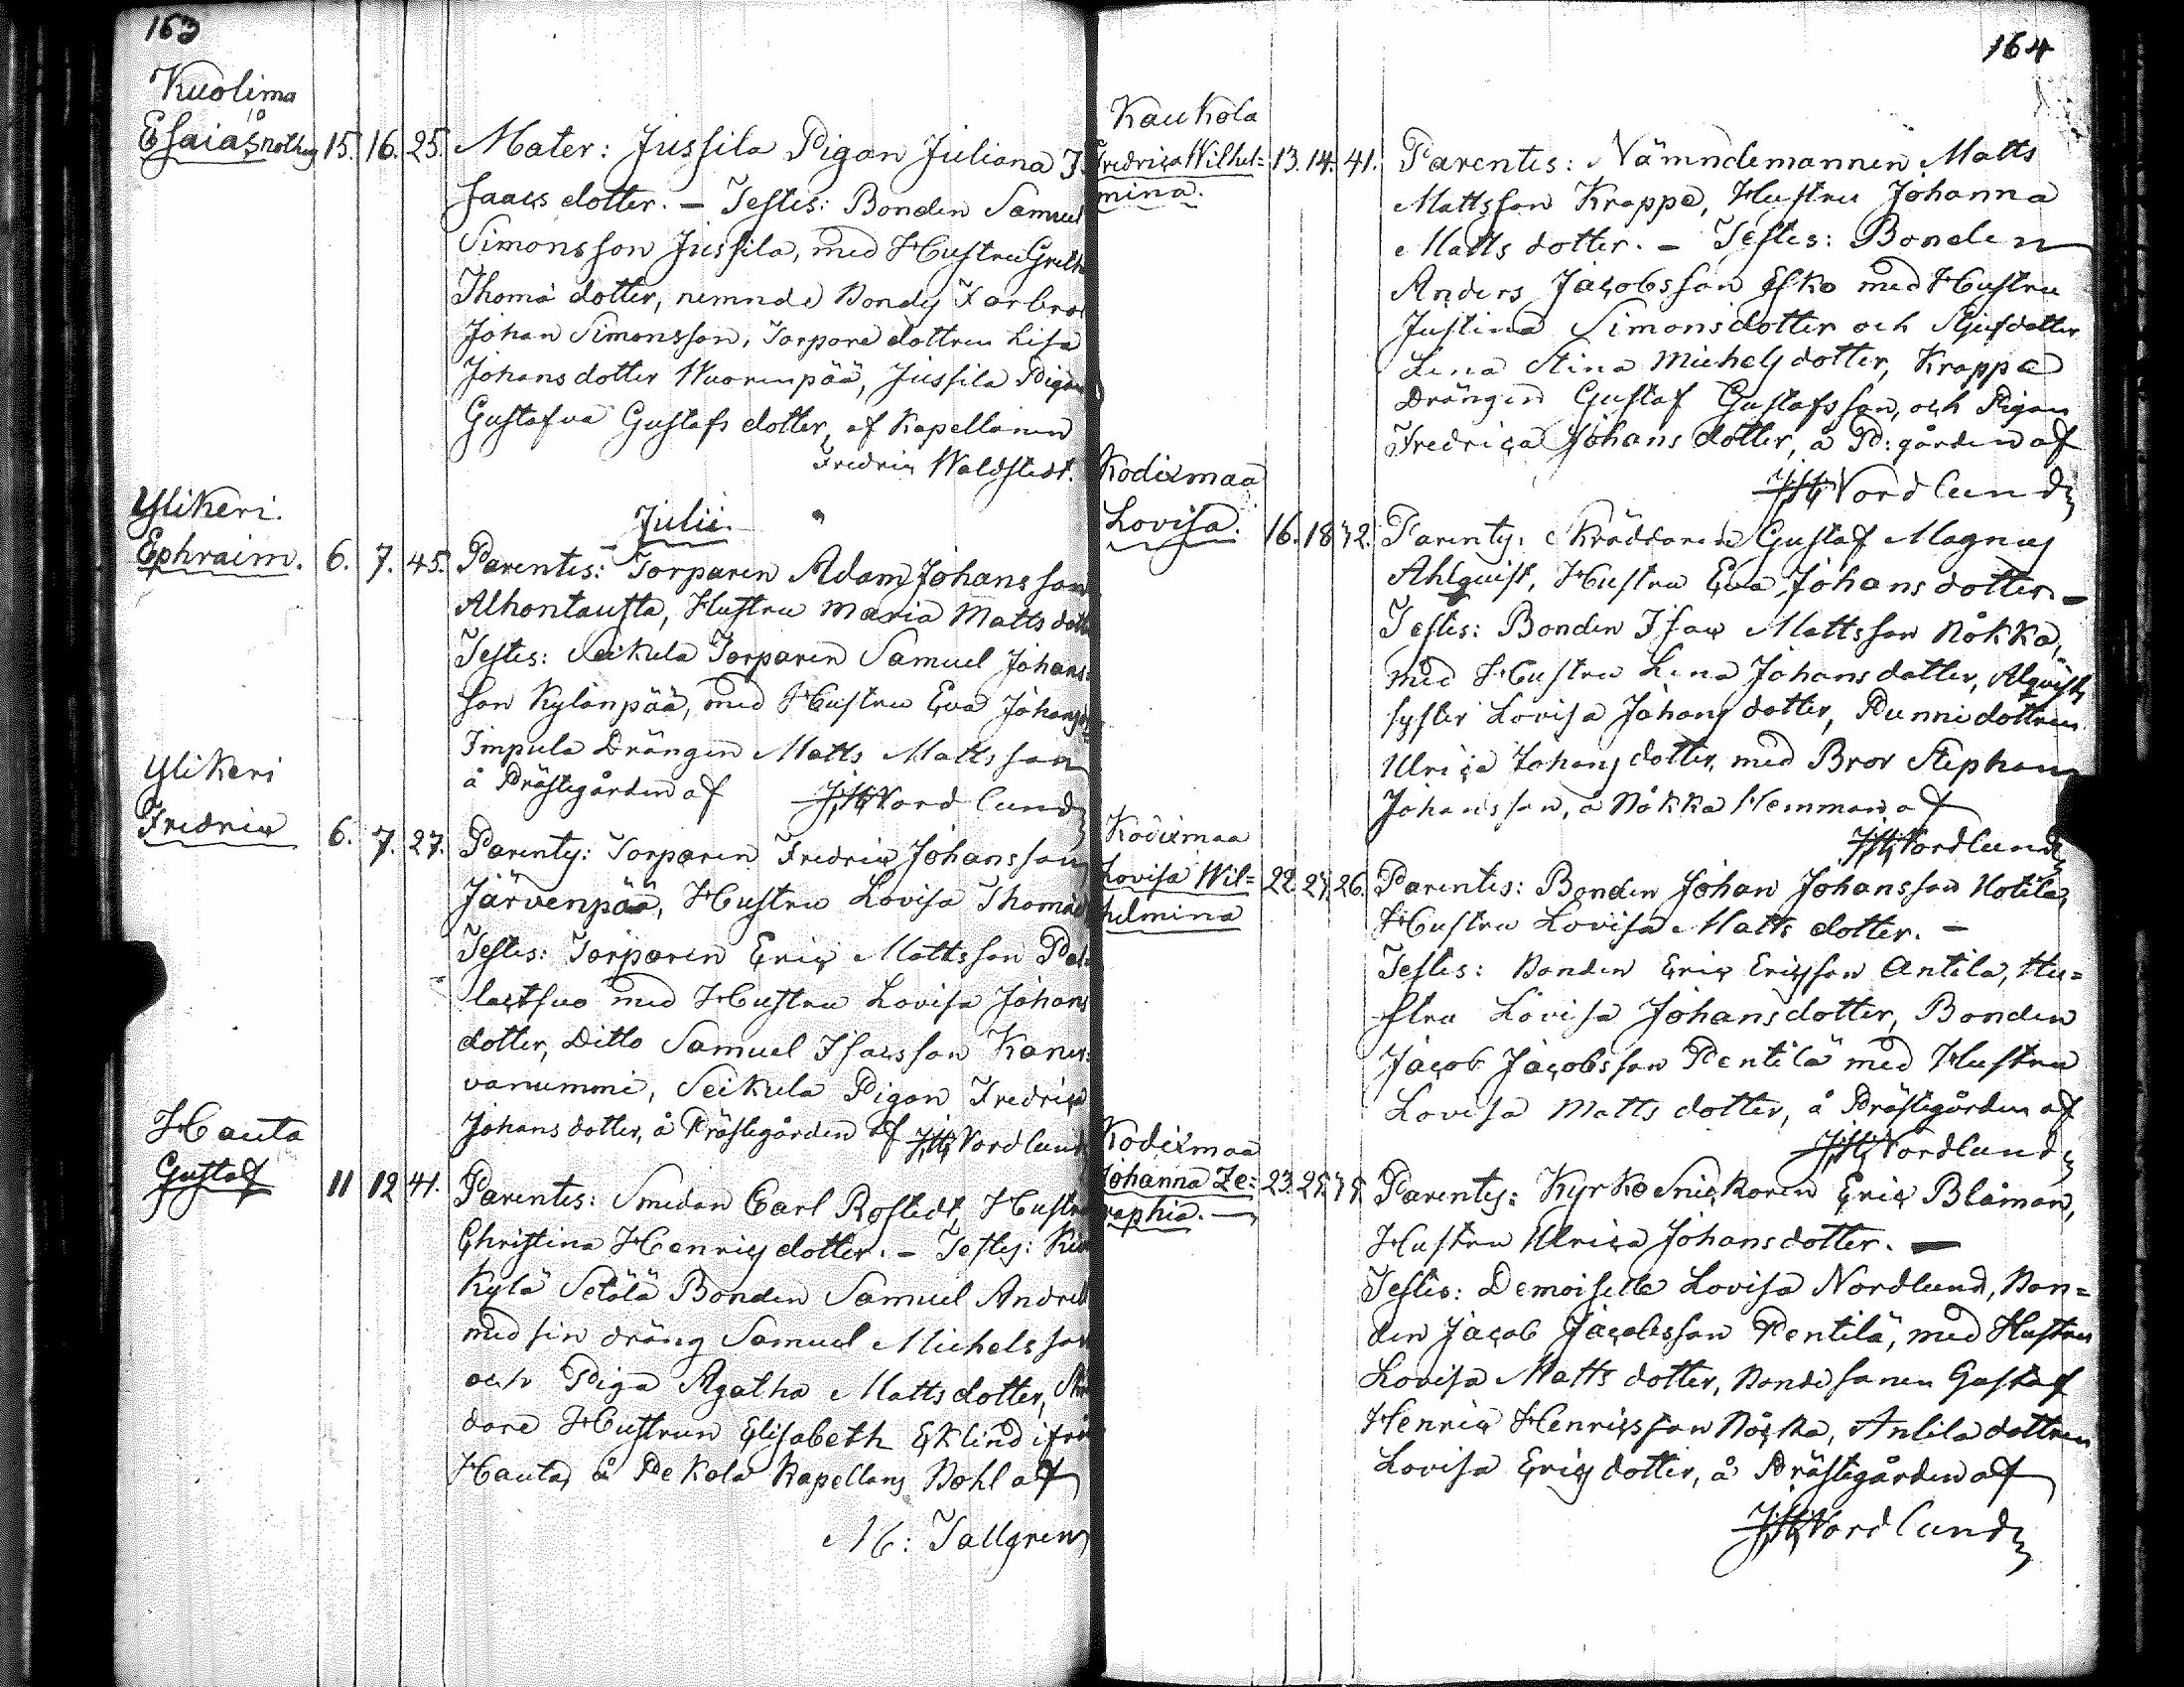 163
Kuolima
Esaias, noth: 15. 16. 25. Mater: Jussila Pigan Juliana I-
saacs dotter. - Testes: Bonden Samuel
Simonsson Jussila, med Hustru Greth
Thomæ dotter, nemnde Bondes Farbror
Johan Simonsson, Torpare dottren Lisa
Johans dotter Wuorenpää, Jussila Pigan
Gustafva Gustafs dotter, af Kapellanen
Fredric Waldstedt.
Julii.
Ylikeri.
Ephraim. 6. 7. 45. Parentes: Torparen Adam Johansson
Alhontausta, Hustru Maria Matts dotter
Testes: Seikula Torparen Samuel Johans-
son Kylänpää, med Hustru Eva Johans
Impula Drängen Matts Mattsson
å Prästegården af JH Nordlund
Ylikeri
Fredric 6. 7. 27. Parentes: Torparen Fredric Johansson
Järvenpää, Hustru Lovisa Thomæ
Testes: Torparen Eric Mattsson Pal-
lastsuo med Hustru Lovisa Johans
dotter, Ditto Samuel Isacsson Kaner-
vanummi, Seikula Pigan Fredrica
Johans dotter, å Prästegården af JH Nordlund
Hauta
Gustaf 11 12 41. Parentes: Smeden Carl Rostedt, Hustru
Christina Henrics dotter. - Testes:
Kylä Sétälä Bonden Samuel Andre
med sin dräng Samuel Michelsson
och Piga Agatha Matts dotter,
dare Hustrun Elisabeth Eklind ifrån
Hauta, å Pekola Kapellans Bohl af
M: Tallgren
164
Kaukola
Fredrica Wilhel- 13. 14. 41. Parentes: Nämndemannen Matts
mina. Mattsson Krappe, Hustru Johanna
Matts dotter. - Testes: Bonden
Anders Jacobsson Esko med Hustru
Justina Simonsdotter och Stjufdotter
Lena Stina Michels dotter, Krappe
Drängen Gustaf Gustafsson, och Pigan
Fredrica Johans dotter, å P: gården af
JH Nordlund
Kodixmaa
Lovisa. 16. 18. 42. Parentes: Skräddaren Gustaf Magnus
Ahlquist, Hustru Eva Johans dotter -
Testes: Bonden Isac Mattsson Nökka,
med Hustru Lena Johans dotter, Alquists
syster Lovisa Johans dotter, Punni dottren
Ulrica Johans dotter, med Bror Stephan
Johansson, å Nökka Hemman af
JH Nordlund
Kodixmaa
Lovisa Wil- 22. 24. 26. Parentes: Bonden Johan Johansson Hotila
helmina Hustru Lovisa Matts dotter. -
Testes: Bonden Eric Ericsson Antila, Hu-
stru Lovisa Johansdotter, Bonden
Jacob Jacobsson Pentilä med Hustru
Lovisa Matts dotter, å Prästegården af
JH Nordlund
Kodixmaa
Johanna Ze- 23. 25. Parentes: Kyrko Snickaren Eric Blåman,
raphia. Hustru Ulrica Johansdotter. -
Testes: Demoiselle Lovisa Nordlund, Bon-
den Jacob Jacobsson Pentilä, med Hustru
Lovisa Matts dotter, Bondesonen Gustaf
Henric Henricsson Nöcka, Antila dottren
Lovisa Erics dotter, å Prästegården af
JH Nordlund